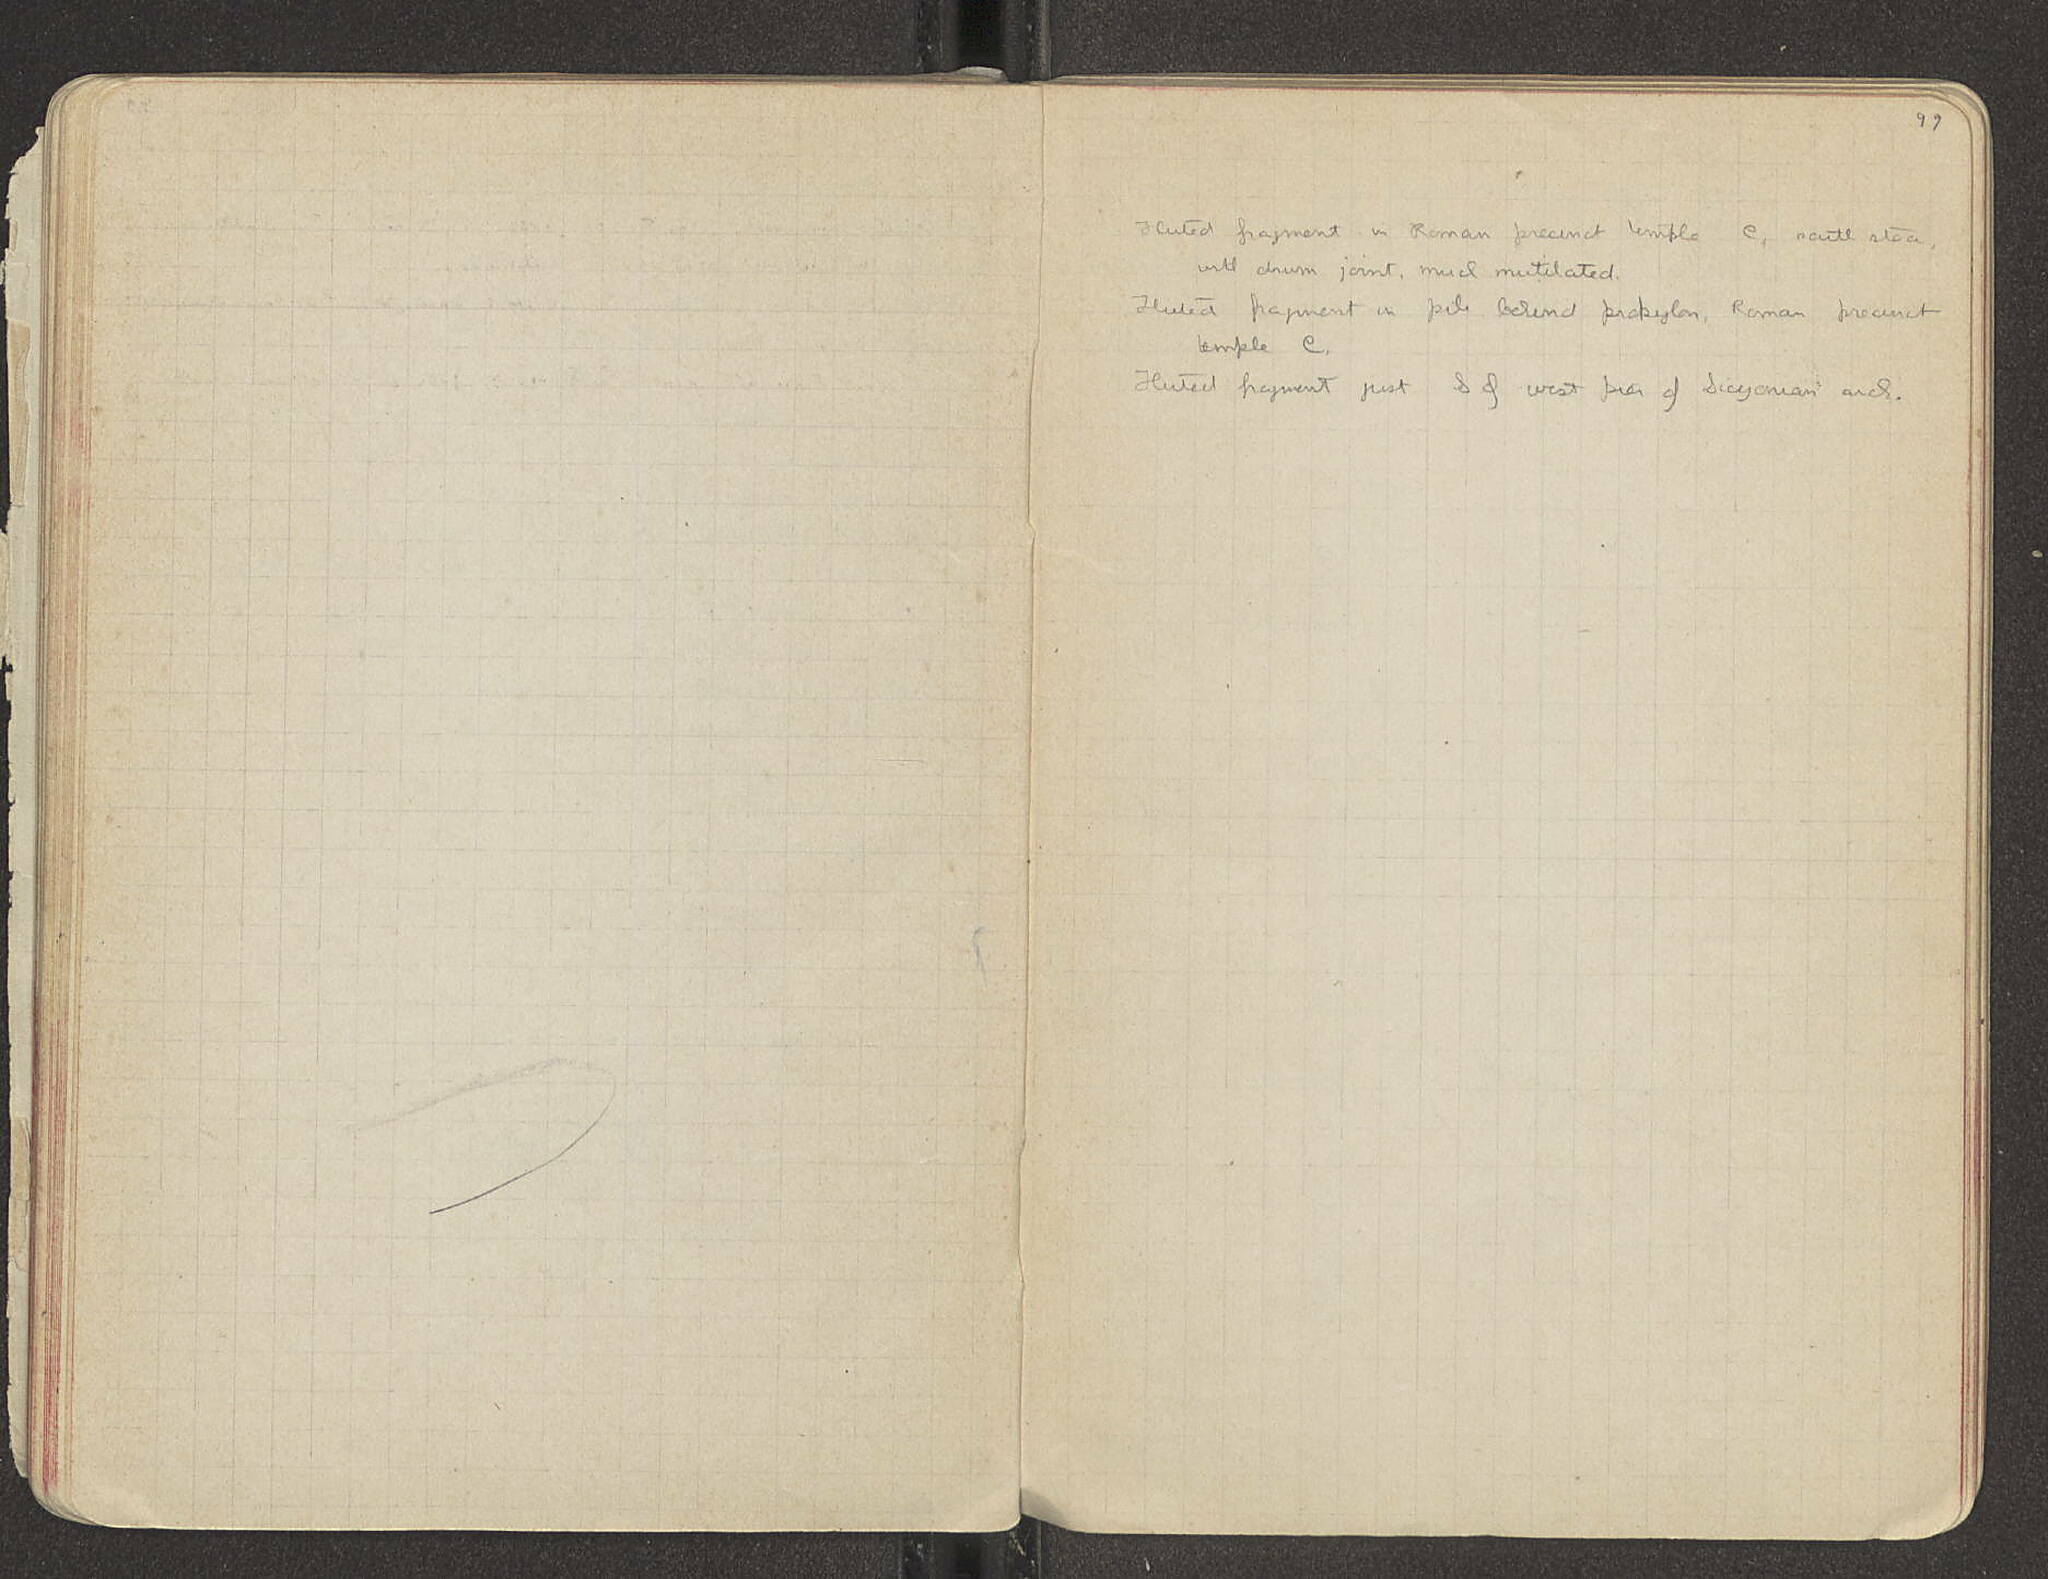 99
Fluted fragment in Roman precinct temple C, south stoa,
with drum joint, much mutilated.
Fluted fragment in pile behind propylon, Roman precinct
temple C.
Fluted fragment just S of west pier of Sicyonian arch.